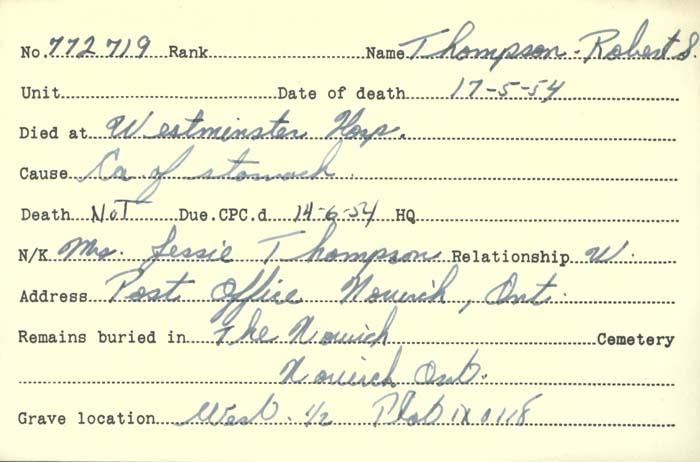 No. 772719 Rank Name Thompson - Robert S.
Unit Date of death 17-5-54
Died at Westminster Hosp.
Cause Ca of stomach.
Death NOT Due. CPC.d 14-6-54 HQ
N/K Mrs. Jessie Thompson Relationship W.
Address Post Office Norwich, Ont.
Remains buried in The Norwich Cemetery
Norwich Ont.
Grave location West 1/2 Plot